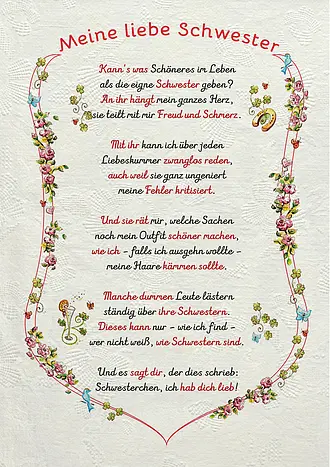 Meine liebe Schwester
Kann's was Schöneres im Leben
als die eigne Schwester geben?
An ihr hängt mein ganzes Herz,
sie teilt mit mir Freud und Schmerz.
Mit ihr kann ich über jeden
Liebeskummer zwanglos reden,
auch weil sie ganz ungeniert
meine Fehler kritisiert.
Und sie rät mir, welche Sachen
noch mein Outfit schöner machen,
wie ich - falls ich ausgehn wollte -
meine Haare kämmen sollte.
Manche dummen Leute lästern
ständig über ihre Schwestern.
Dieses kann nur - wie ich find -
wer nicht weiß, wie Schwestern sind.
Und es sagt dir, der dies schrieb:
Schwesterchen, ich hab dich lieb!